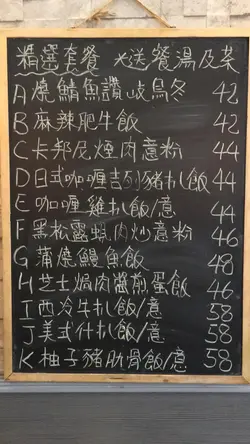 精選套餐 *送餐湯及茶
A 燒鯖魚讚岐烏冬 42
B 麻辣肥牛飯 42
C 卡邦尼煙肉意粉 44
D 日式咖喱吉列豬扒飯 44
E 咖喱雞扒飯/意 44
F 黑松露蝦肉炒意粉 46
G 蒲燒鰻魚飯 48
H 芝士焗肉醬煎蛋飯 46
I 西冷牛扒飯/意 58
J 美式什扒飯/意 58
K 柚子豬肋骨飯/意 58